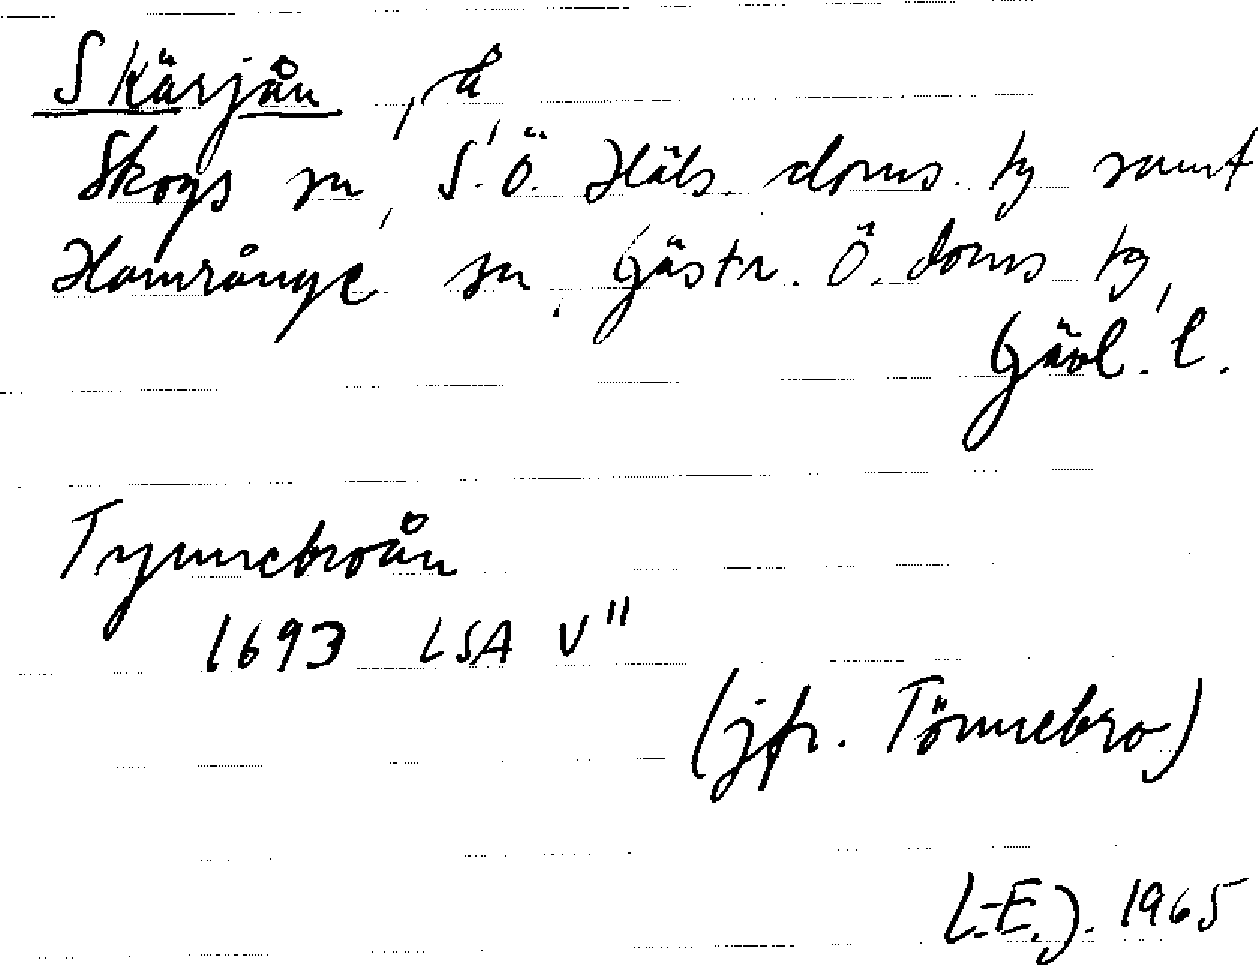 Skärjån, å,
Skogs sn, S.Ö. Häls. doms. tg samt
Hamrånge sn, Gästr. Ö. doms tg,
Gävl. l.
Tynnebroån
1693 LSA V"
(jfr. Tönnebro)
L.-E.J. 1965